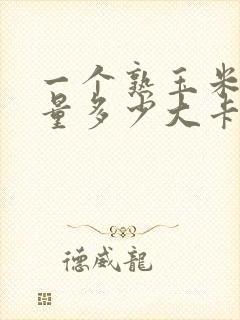 一个熟玉米
量多少大卡
德威龍